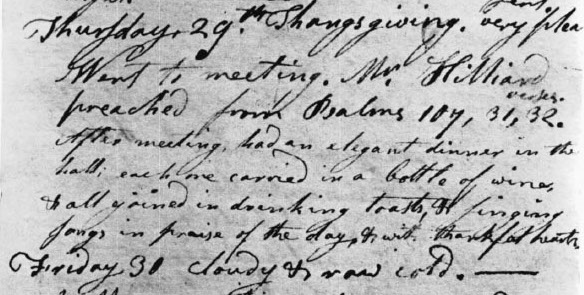 Thursday, 29.th Thangsgiving. very plea
Went to meeting. Mr. Hilliard
verses.
preached from Psalms 107, 31, 32.
After meeting, had an elegant dinner in the
hall; each one carried in a bottle of wine,
& all joined in drinking toasts, & singing
songs in praise of the day, & with thankful hearts
Friday 30 cloudy & raw cold. —